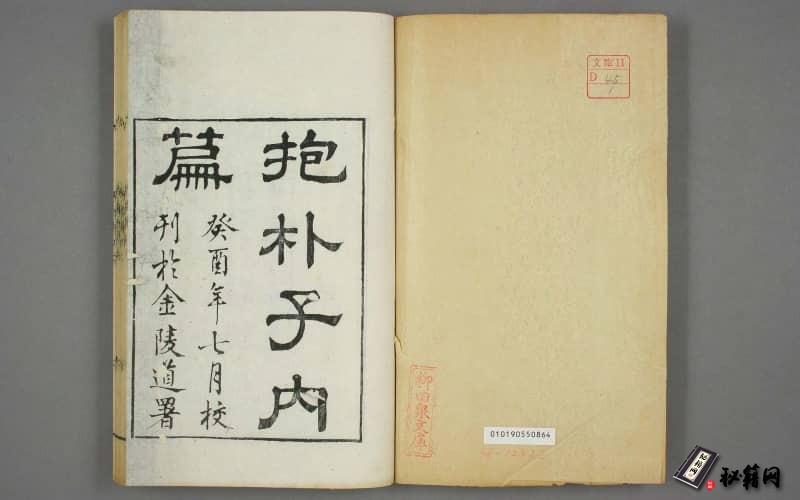 抱朴子内
篇
癸酉年七月校
刊於金陵道署
文庫11
D 45
1
柳田泉文庫
010190550864
秘籍网